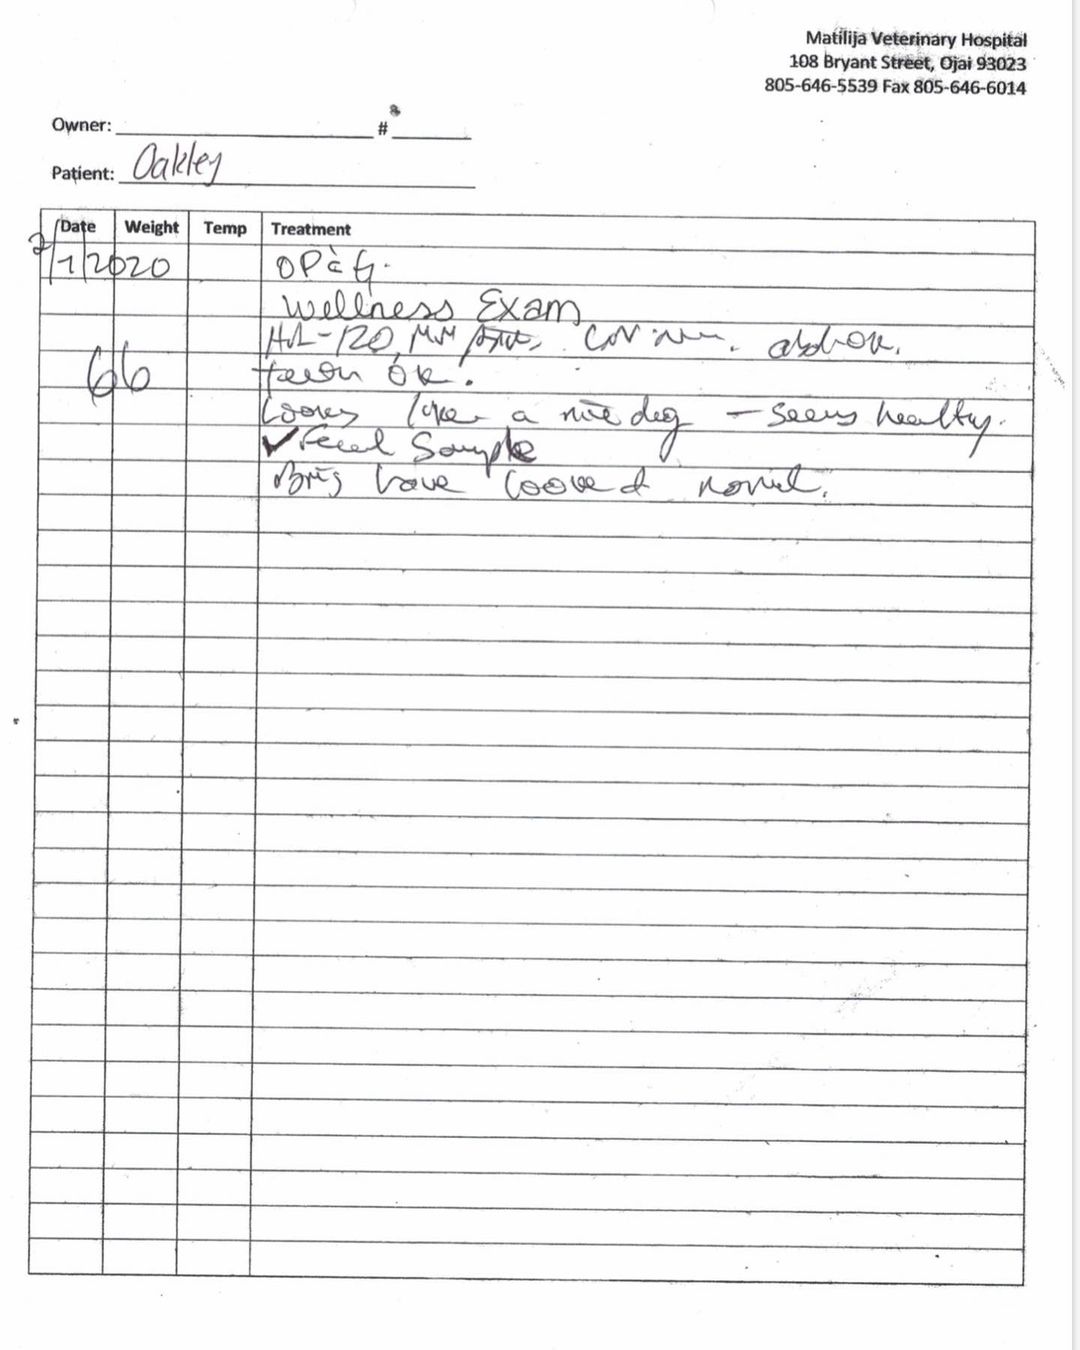 Matilija Veterinary Hospital
108 Bryant Street, Ojai 93023
805-646-5539 Fax 805-646-6014
Owner: #
Patient: Oakley
Date Weight Temp Treatment
2/1/2020
Wellness Exam
HR-120, MM
66 teeth ok.
Looks like a nice dog - seems healthy.
✓ Fecal Sample
looked normal.